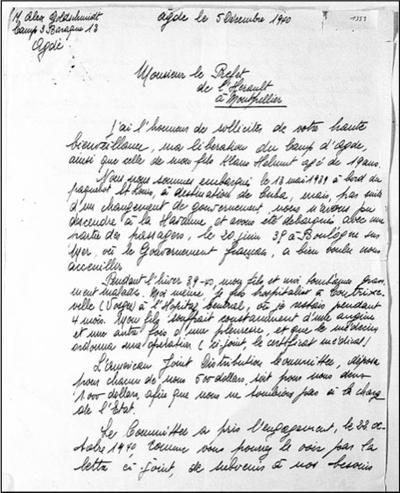 M. Alex Goldschmidt
Camp 3 Baraque 13
Agde
Agde le 5 Décembre 1940
1353
Monsieur le Préfet
de l'Hérault
à Montpellier
J'ai l'honneur de solliciter de votre haute
bienveillance, ma libération du Camp d'Agde,
ainsi que celle de mon fils Klaus Helmut agé de 19 ans.
Nous nous sommes embarqué le 13 mai 1939 à bord du
paquebot St Louis, à destination de Cuba, mais, par suite
d'un changement de gouvernement, nous n'avons pu
descendre à la Havanne, et avons été débarqués avec une
partie des passagers, le 20 juin 39 à Boulogne sur
Mer, où le Gouvernement français, a bien voulu nous
accueillir.
Pendant l'hiver 39-40, mon fils et moi tombâmes grave
ment malades. Moi même, je fus hospitalisé à Contrexé-
ville (Vosges) à l'Hôpital Central, où je restais pendant
4 mois. Mon fils souffrait constamment d'une angine
et une autre fois d'une pleurésie, et que le médecin
ordonna une opération (ci-joint, le certificat médical)
L'American Joint Distribution Committee, dépose
pour chacun de nous 500 dollars, soit pour nous deux
1000 dollars, afin que nous ne tombions pas à la charge
de l'Etat.
Le Committee a pris l'engagement, le 22
octobre 1940 comme vous pouvez le voir par la
lettre ci-joint, de subvenir à nos besoins